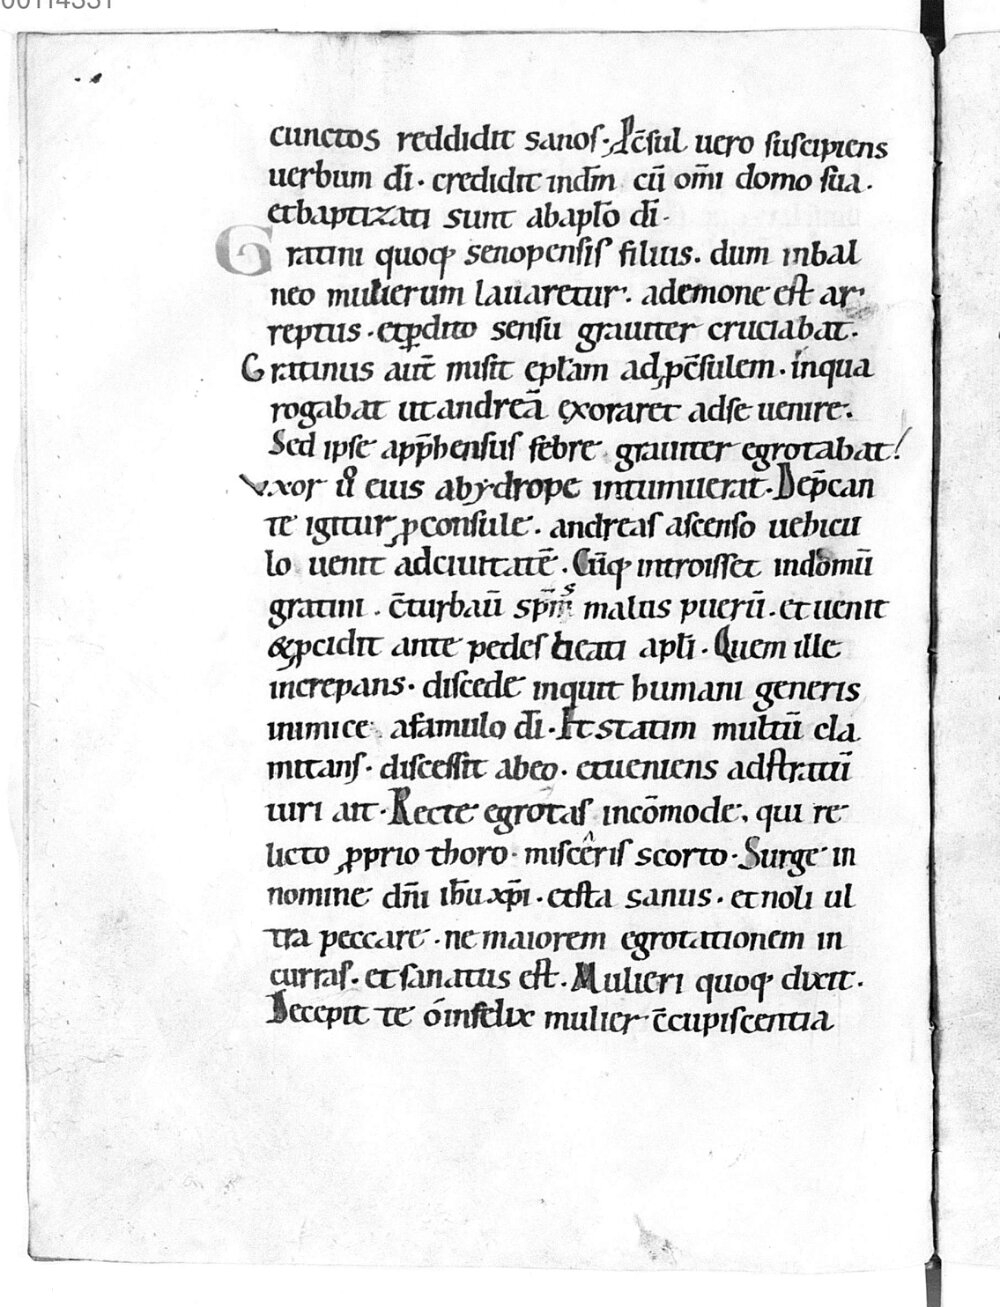 00114331
cunctos reddidit sanoſ. P̄cſul uero ſuſcipiens
uerbum dī. credidit indn̄m cū om̄i domo ſua.
etbaptizati sunt abaplō dī.
Gratini quoq senopenſiſ filius. dum inbal
neo mulierum lauaretur. ademone eſt ar
reptus. etꝑdito senſu grauiter cruciabat.
Gratinus aut̄ miſit epl̄am adꝓc̄ſulem. inqua
rogabat utandreā exoraret adſe uenire.
Sed ipſe app̄henſuſ febre grauiter egrotabat!
Vxor u͛o eius abydrope intumuerat. Dep̄can
te igitur ꝓconſule. andreaſ aſcenſo uehicu
lo uenit adciuitatē. Cūq introiſſet indomū
gratini. c̄turbauit sp̄m͛s malus puerū. et uenit
&ꝓcidit ante pedeſ beati apl̄i. Quem ille
increpans. diſcede inquit humani generis
inimice. afamulo dī. Et statim multū cla
mitanſ. diſceſſit abeo. etueniens adſtratū
uiri ait. Recte egrotaſ incōmode. qui re
licto ꝓprio thoro. miſceriſ scorto. Surge in
nomine dn̄i ih̄u xp̄i. etſta sanus. et noli ul
tra peccare. ne maiorem egrotationem in
curraſ. et ſanatus eſt. Mulieri quoq dixit.
Decepit te ó infelix mulier c̄cupiſcentia